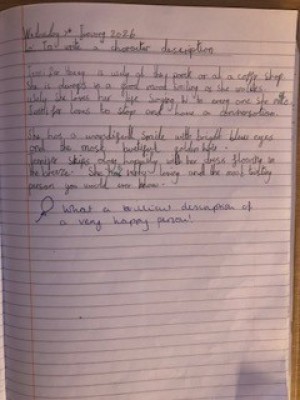 Wednesday 7th January 2026
to write a character description
is always at the park or at a coffee shop.
She is always in a good mood smiling as she walks.
she loves her life. Saying hi to every one she
loves to stop and have a conversation.
She has a smile with bright blue eyes
and the most golden hair.
skips along happily with her dress flowing in
the breeze. She is very loving and the most
person you would ever know.
What a brilliant description of
a very happy person!